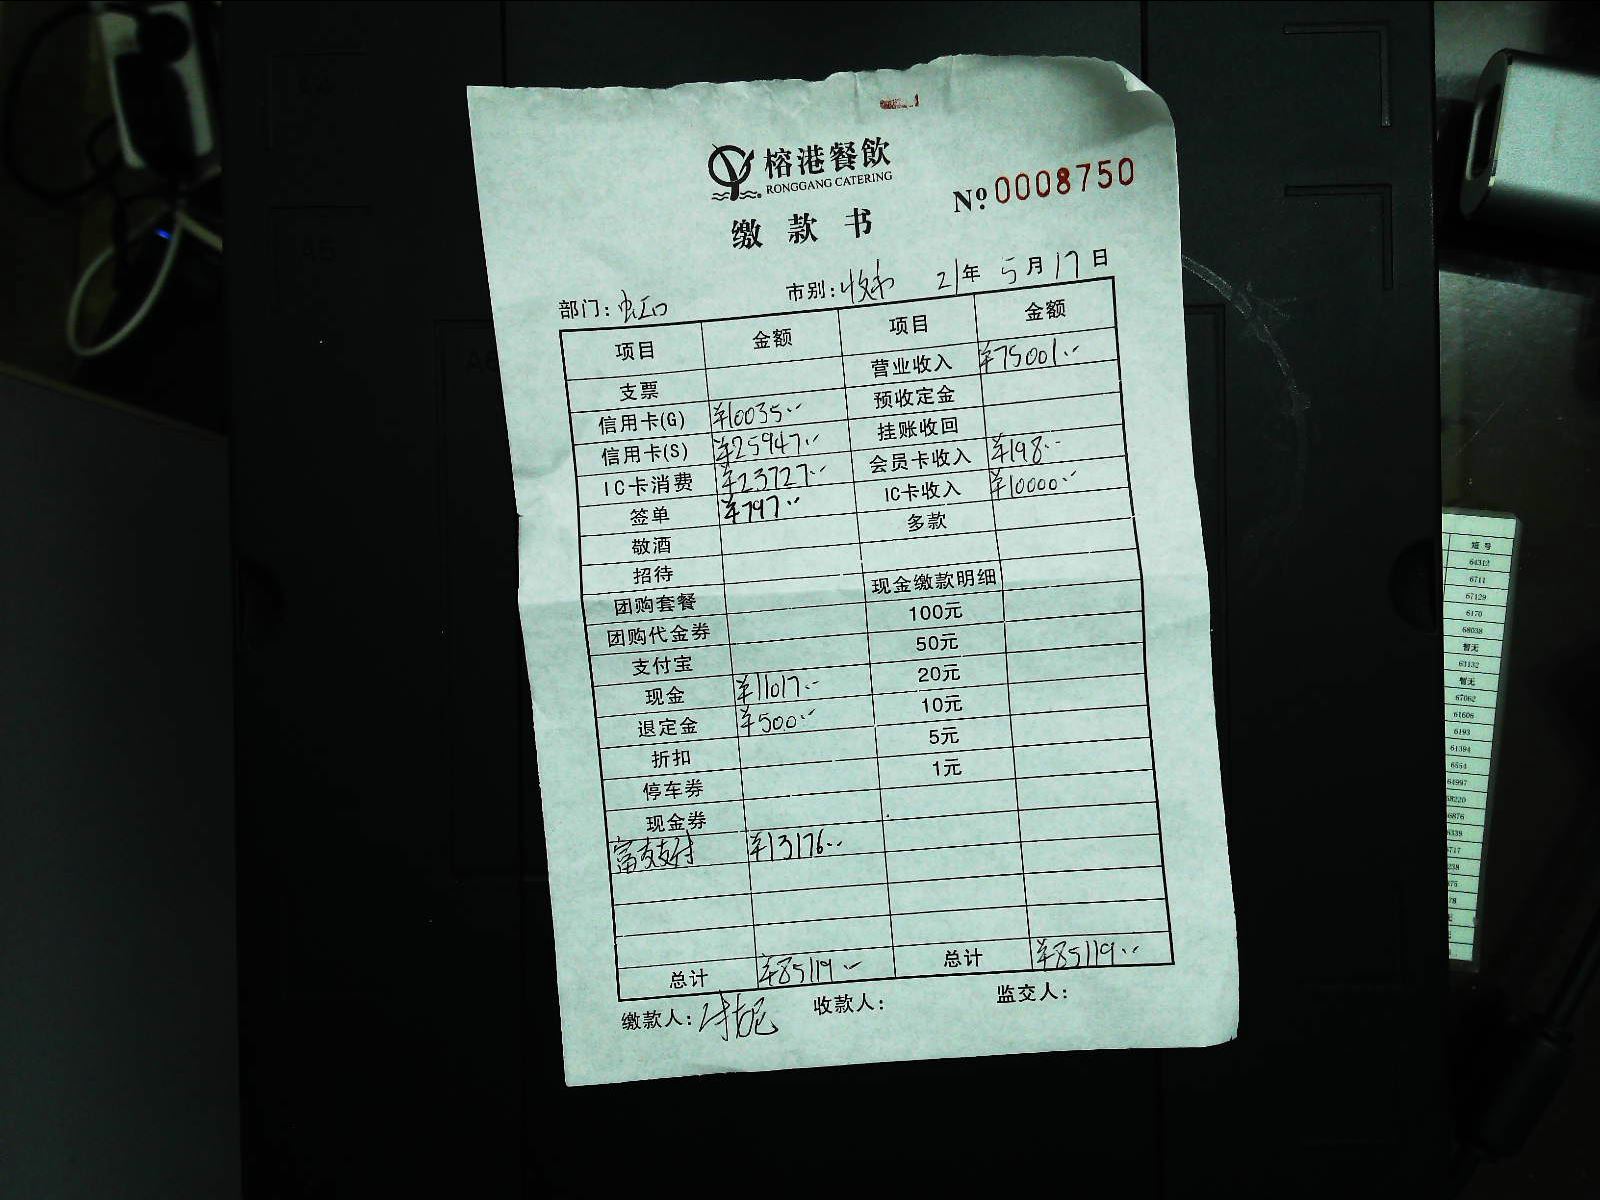 榕港餐飲
RONGGANG CATERING
缴款书
Nº 0008750
部门: 虹口 市别: 收市 21年 5月 17日
项目 金额 项目 金额
支票 营业收入 ¥75001.--
信用卡(G) ¥10035.-- 预收定金
信用卡(S) ¥25947.-- 挂账收回
IC卡消费 ¥23727.-- 会员卡收入 ¥198.--
签单 ¥797.-- IC卡收入 ¥10000.--
敬酒 多款
招待
团购套餐 现金缴款明细
团购代金券 100元
支付宝 50元
现金 ¥11017.-- 20元
退定金 ¥500.-- 10元
折扣 5元
停车券 1元
现金券
富友支付 ¥13176.--
总计 ¥85199.-- 总计 ¥85199.--
缴款人: 收款人: 监交人:
短号
64312
6711
67129
6170
68038
暂无
63132
暂无
67062
61606
6193
61394
6554
64997